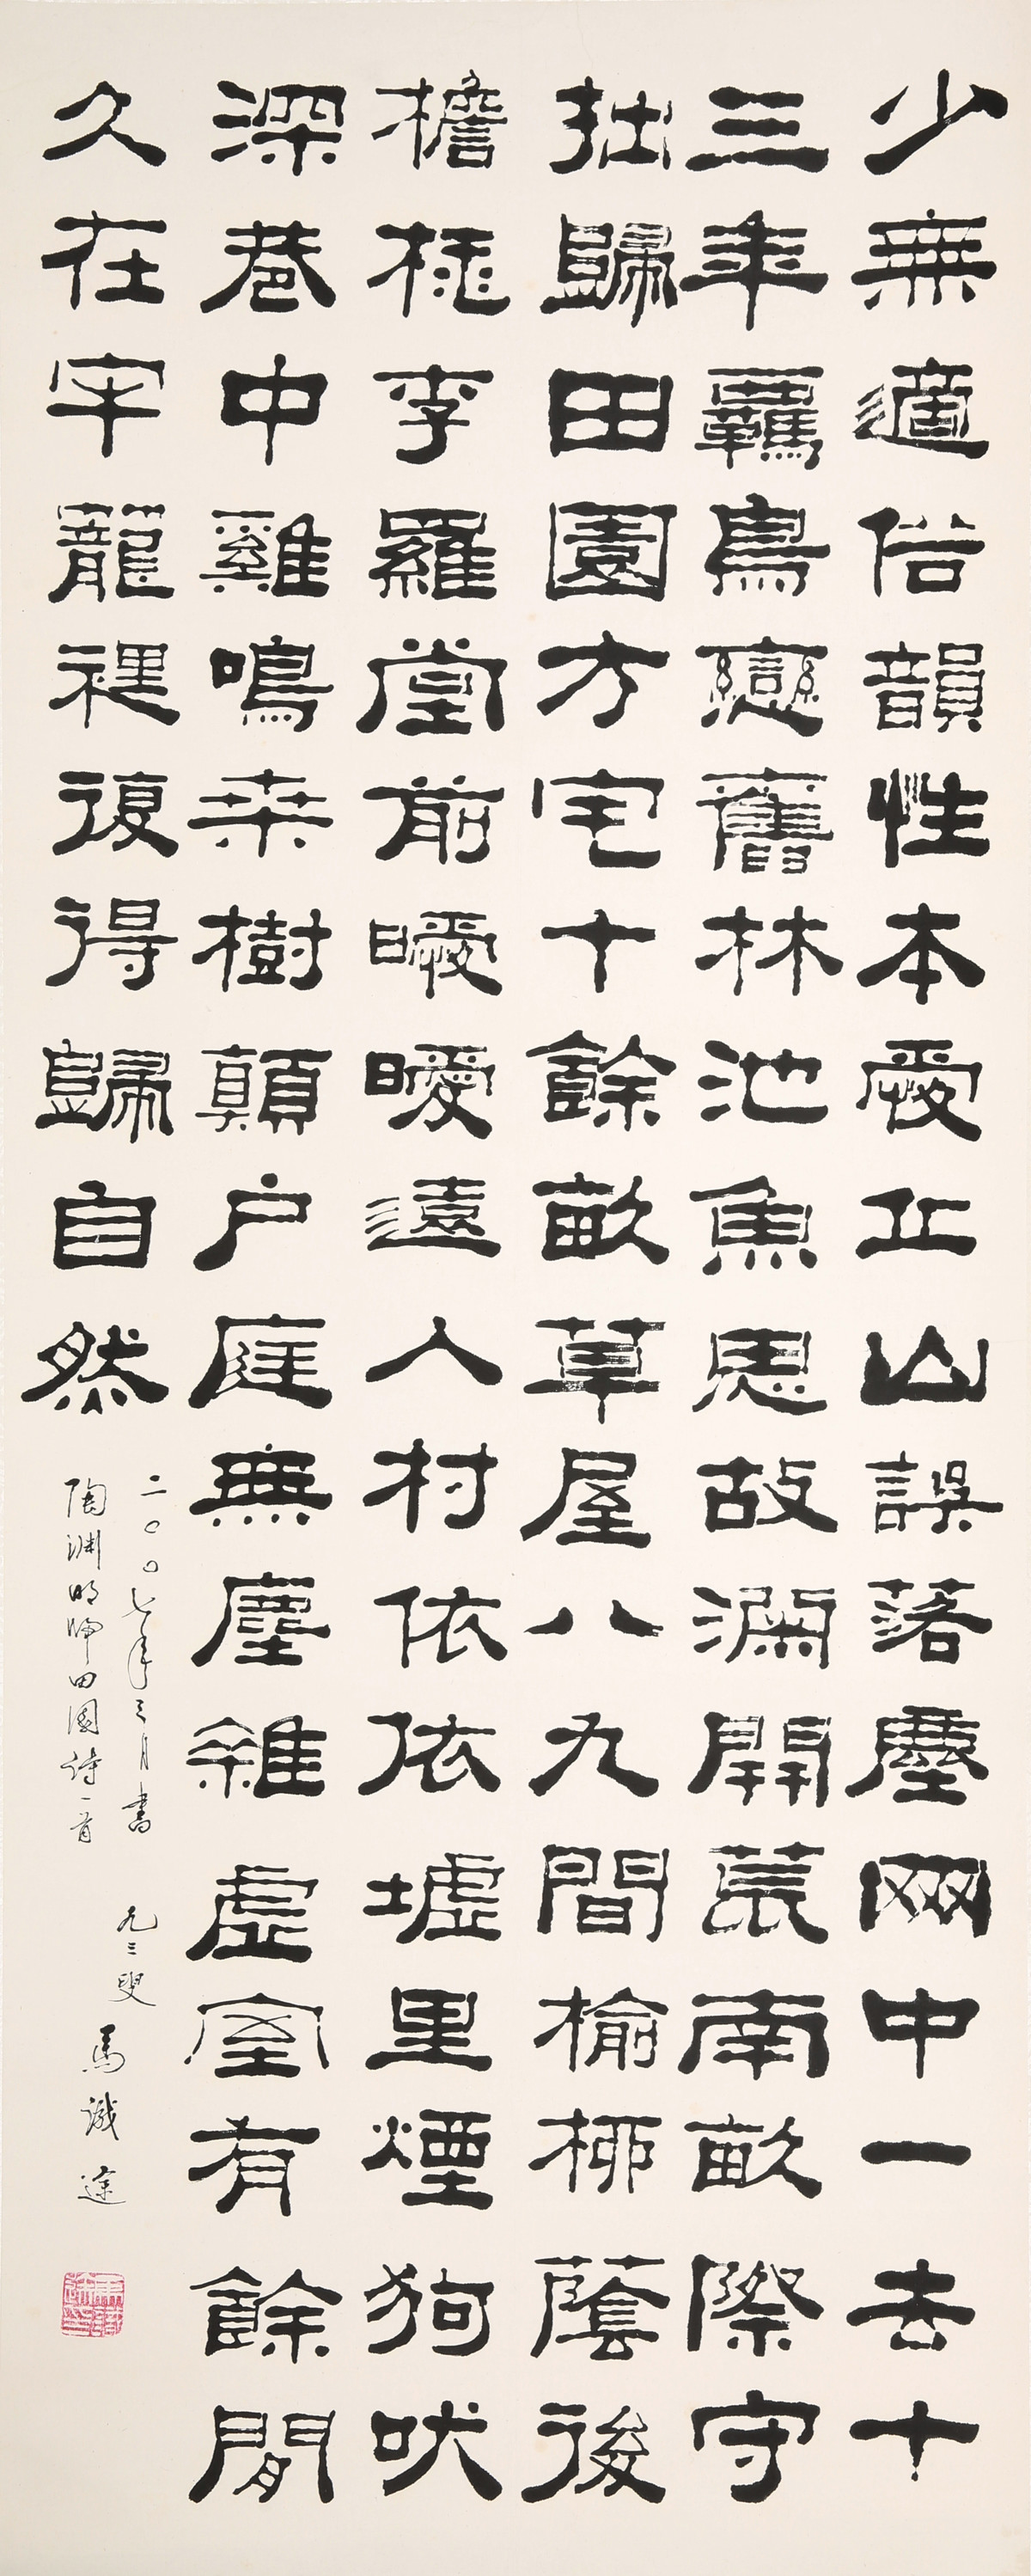 少無適俗韻性本愛丘山誤落塵网中一去十
三年羈鳥戀舊林池魚思故淵開荒南畝際守
拙歸田園方宅十餘畝草屋八九間榆柳蔭後
檐桃李羅堂前曖曖遠人村依依墟里煙狗吠
深巷中雞鳴桑樹顛户庭無塵雜虛室有餘閒
久在牢籠裡復得歸自然
二〇〇七年三月書
陶渊明歸田園詩一首
九三叟
馬識途